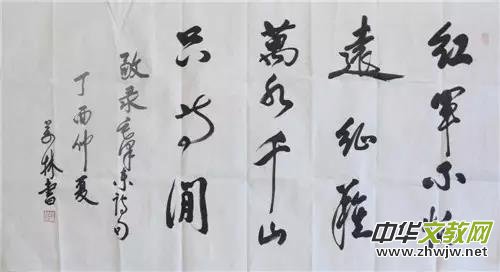 红軍不怕
遠征難
萬水千山
只等閒
敬录毛泽东诗句
丁酉仲夏
林書
中华文教网
www.zhwjw.net